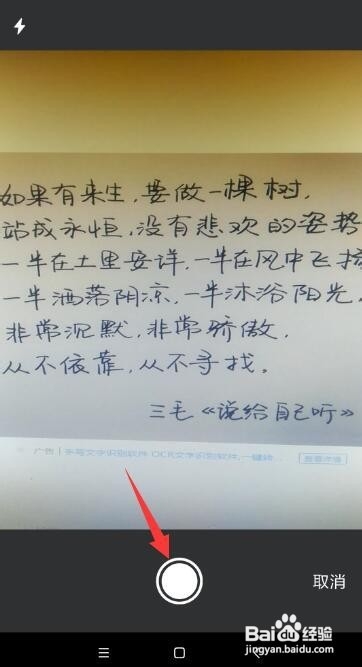 如果有来生,要做一棵树,
站成永恒,没有悲欢的姿势
一半在土里安详,一半在风中飞扬
一半洒落阴凉,一半沐浴阳光,
非常沉默,非常骄傲,
从不依靠,从不寻找。
三毛《说给自己听》
广告 手写文字识别软件 OCR文字识别软件,一键转...
查看详情
取消
Bai du 经验
jingyan.baidu.com